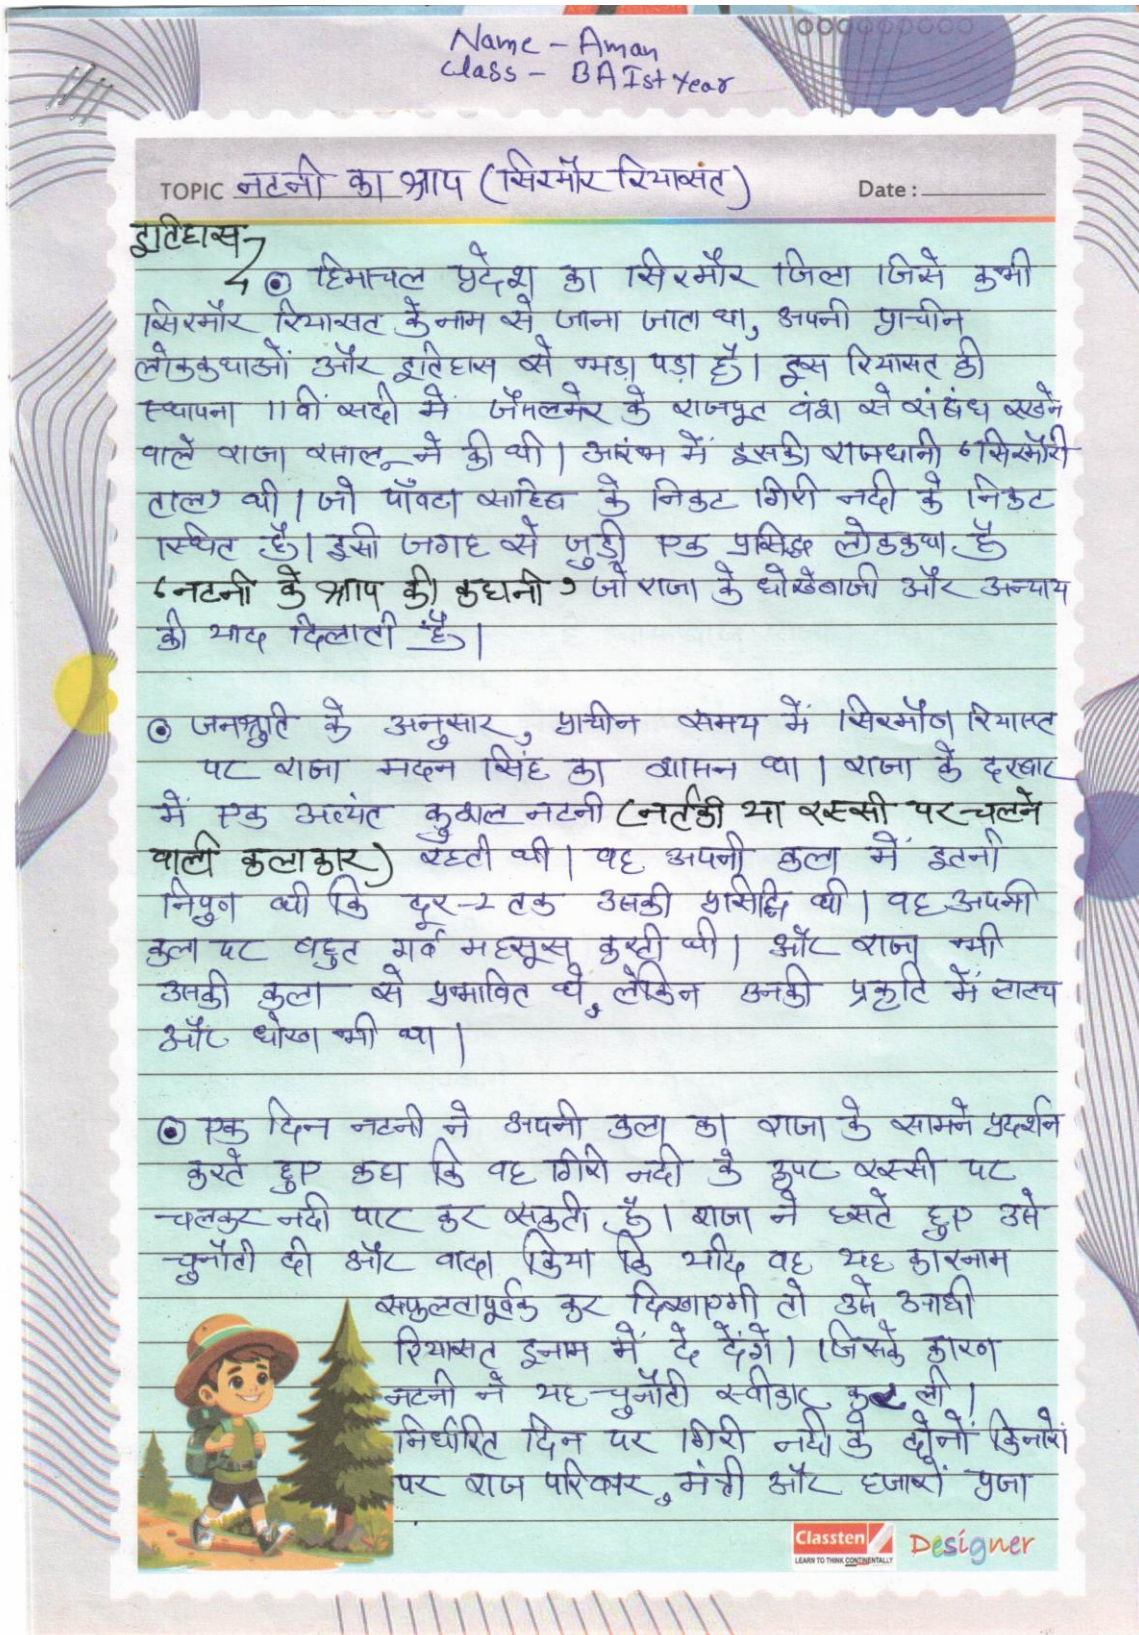 Name - Aman
Class - BA Ist Year
TOPIC नटनी का श्राप (सिरमौर रियासत)
Date :
इतिहास
हिमाचल प्रदेश का सिरमौर जिला जिसे कभी
सिरमौर रियासत के नाम से जाना जाता था, अपनी प्राचीन
लोककथाओं और इतिहास से भड़ा पड़ा है। इस रियासत की
स्थापना 11वीं सदी में जैसलमेर के राजपूत वंश से संबंध रखने
वाले राजा रसालू ने की थी। आरंभ में इसकी राजधानी 'सिरमौरी
ताल' थी। जो पाँवटा साहिब के निकट गिरी नदी के निकट
स्थित है। इसी जगह से जुड़ी एक प्रसिद्ध लोककथा है
'नटनी के श्राप की कहानी' जो राजा के धोखेबाजी और अन्याय
की याद दिलाती है।
जनश्रुति के अनुसार, प्राचीन समय में सिरमौर रियास्त
पर राजा मदन सिंह का शासन था। राजा के दरबार
में एक अत्यंत कुशल नटनी (नर्तकी या रस्सी पर चलने
वाली कलाकार) रहती थी। वह अपनी कला में इतनी
निपुण थी कि दूर-2 तक उसकी प्रसिद्धि थी। वह अपनी
कला पर बहुत गर्व महसूस करती थी। और राजा भी
उसकी कला से प्रभावित थे, लेकिन उनकी प्रकृति में लालच
और धोखा भी था।
एक दिन नटनी ने अपनी कला का राजा के सामने प्रदर्शन
करते हुए कहा कि वह गिरी नदी के ऊपर रस्सी पर
चलकर नदी पार कर सकती है। राजा ने हसते हुए उसे
चुनौती दी और वादा किया कि यदि वह यह कारनाम
सफलतापूर्वक कर दिखाएगी तो उसे आधी
रियासत इनाम में दे देंगे। जिसके कारण
नटनी ने यह चुनौती स्वीकार कर ली।
निर्धारित दिन पर गिरी नदी के दोनों किनारों
पर राज परिवार, मंत्री और हजारों प्रजा
Classten
LEARN TO THINK CONTINENTALLY
Designer